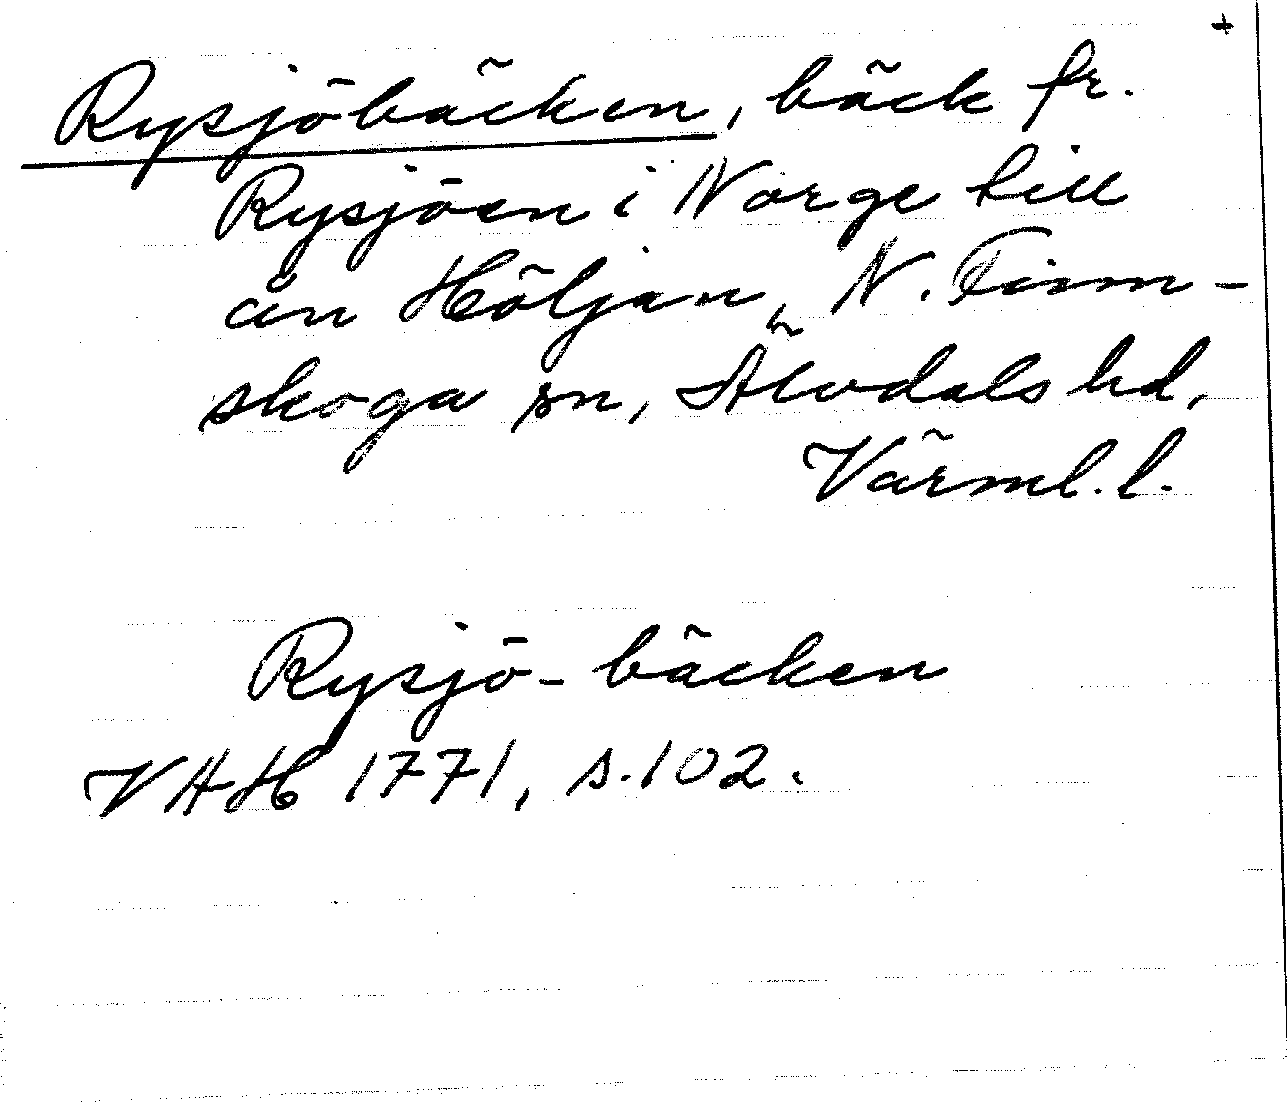 +
Rysjöbäcken, bäck fr.
Rysjöen i Norge till
ån Höljan, N. Finn-
skoga sn, Älvdals hd,
Värml. l.
Rysjö-bäcken
VHH 1771, s. 102.